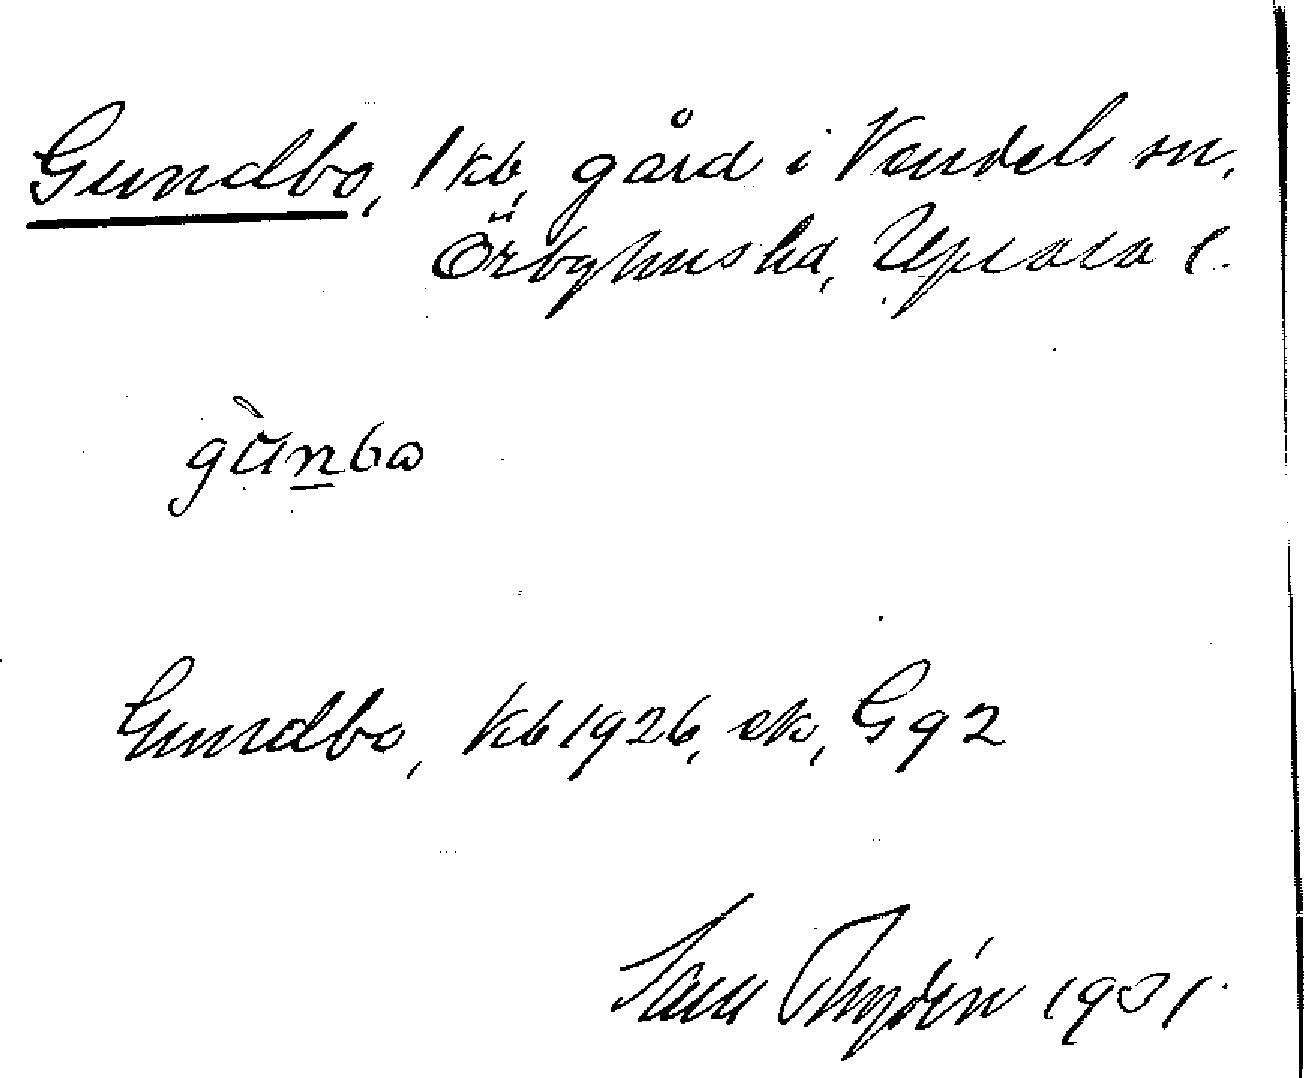 Gundbo, 1 kb, gård i Vendels sn,
Örbyhus hd, Upsala l.
gùnbo
Gundbo, kb 1926, ek, G92
1931.